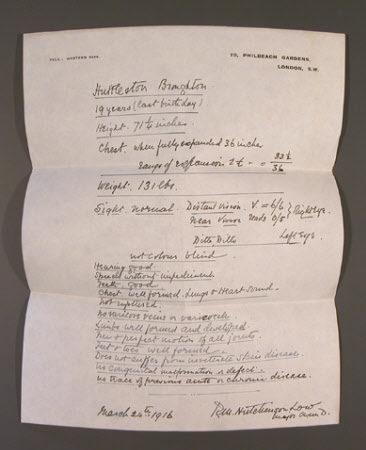 TELE: WESTERN
70, PHILBEACH GARDENS,
LONDON, S.W.
Huttleston Broughton
19 years (last birthday)
Height. 71 1/4 inches.
Chest when fully expanded 36 inche
range of expansion 2 1/2 - = 33 1/2
36
Weight. 131 lbs.
Sight normal. Distant vision V. = 6/6 } Right Eye.
Near Vision reads 0/5
Ditto Ditto Left Eye
not colour blind
Hearing good.
Speech without impediment
Teeth Good.
Chest well formed. Lungs & Heart sound.
not ruptured.
no varicose veins or varicocele.
Limbs well formed and developed.
Free & perfect motion of all joints.
Feet & toes well formed.
Does not suffer from inveterate skin disease.
no congenital malformation or defect.
no trace of previous acute or chronic disease.
March 24th, 1916
Hutchinson Low
Major